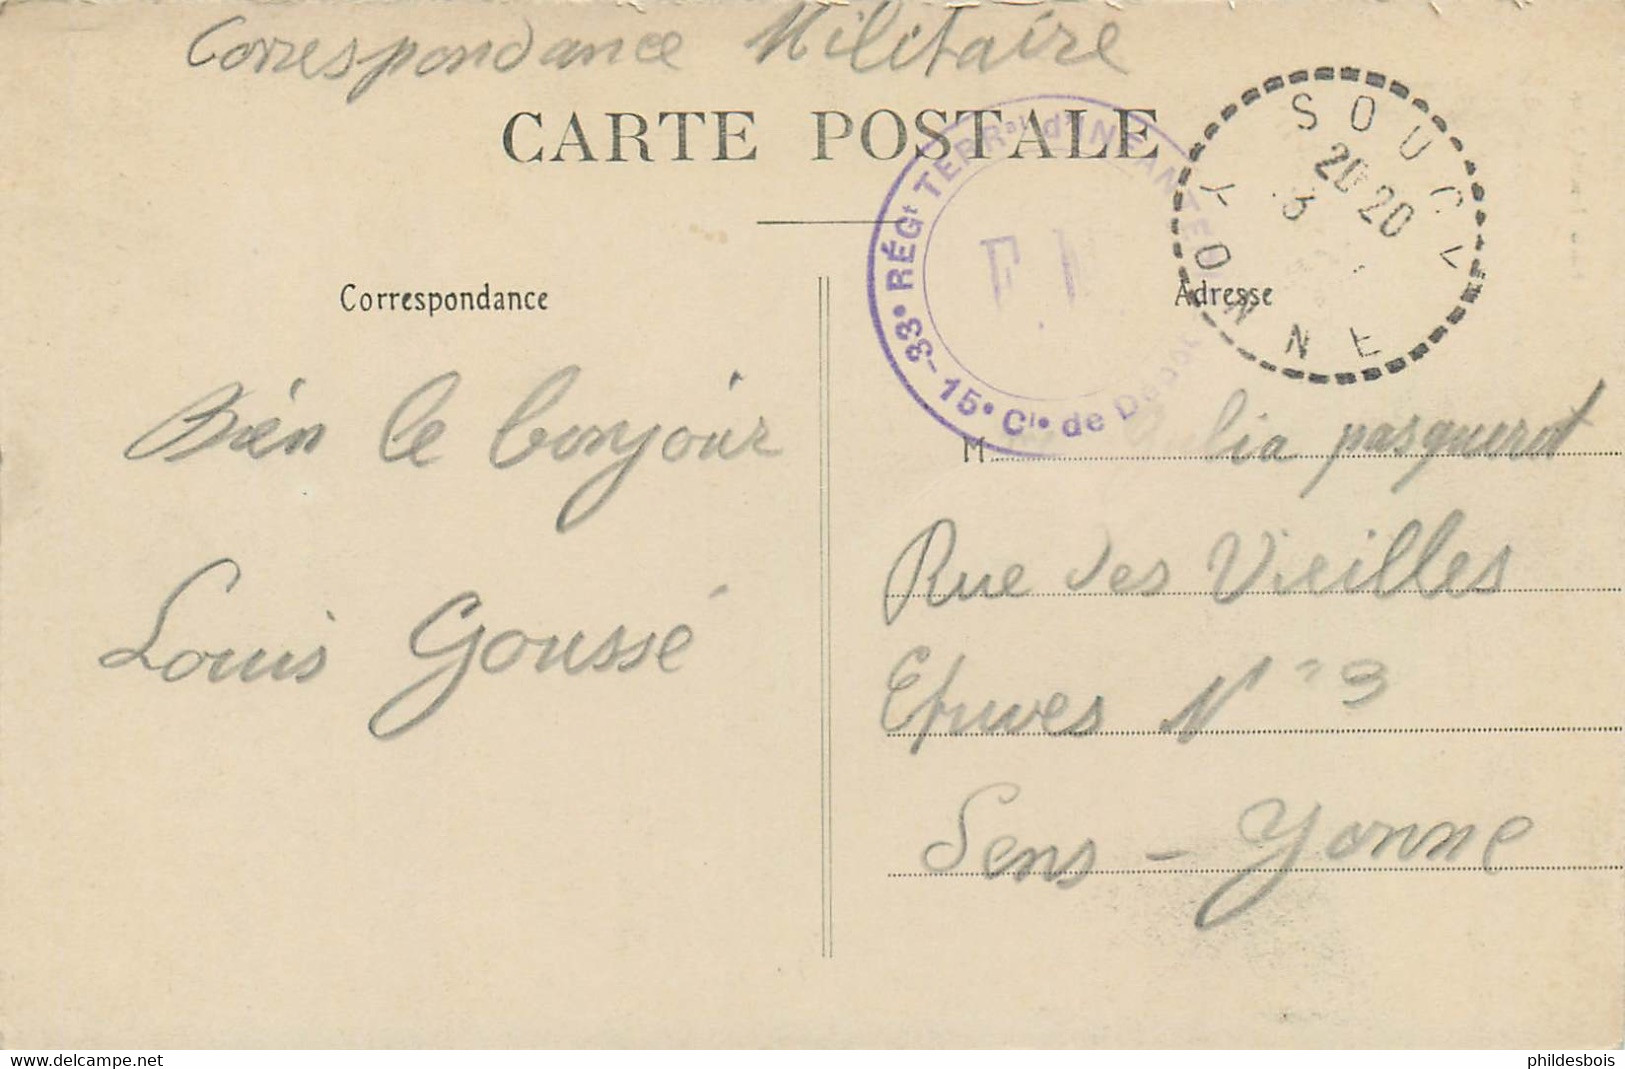 Correspondance Militaire
CARTE POSTALE
33e RÉGt TERRal d'INFANTERIE
15e Cie de Dépôt
F.M.
SOUCY
YONNE
20 20
3
Correspondance
Adresse
Bien le bonjour
Louis Goussé
M lia pasquerot
Rue des Vieilles
Etuves No 3
Sens - Yonne
www.delcampe.net
phildesbois